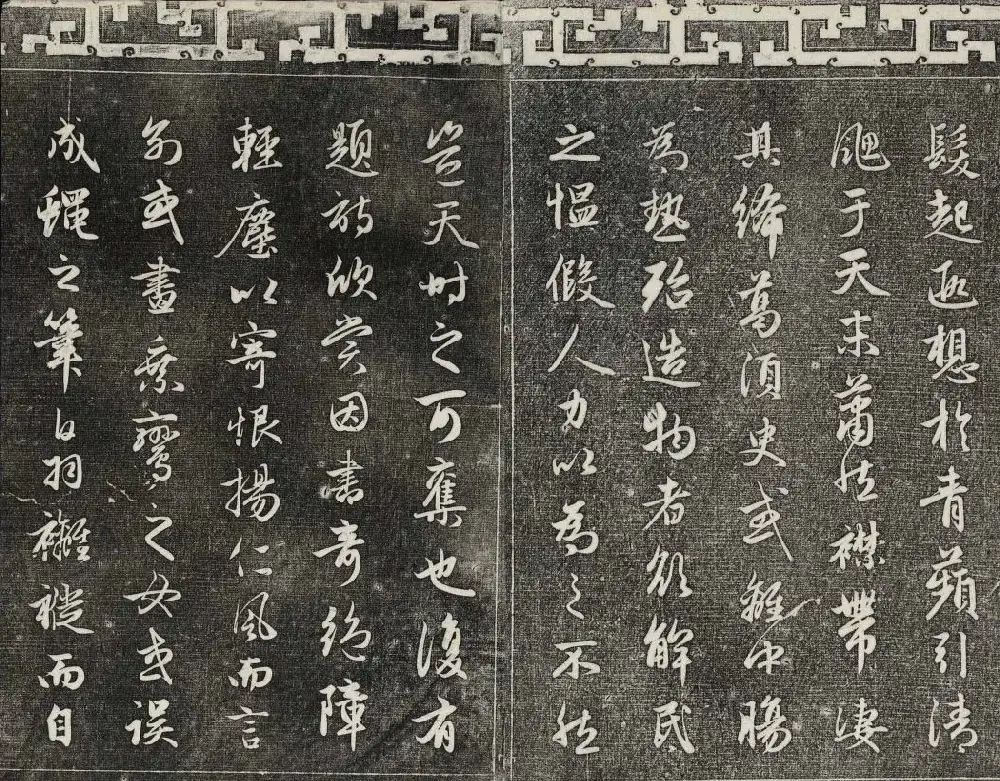 髮起遐想於青蘋引清
颸于天末蕭然襟帶淒
其絺葛須臾或離中暍
為熱殆造物者欲解民
之愠假人力以為之不然
豈天時之可奪也復有
題詩欣賞因書奇絕障
輕塵以寄恨揚仁風而言
別或畫乘鸞之女或誤
成蠅之筆白羽襳褷而自